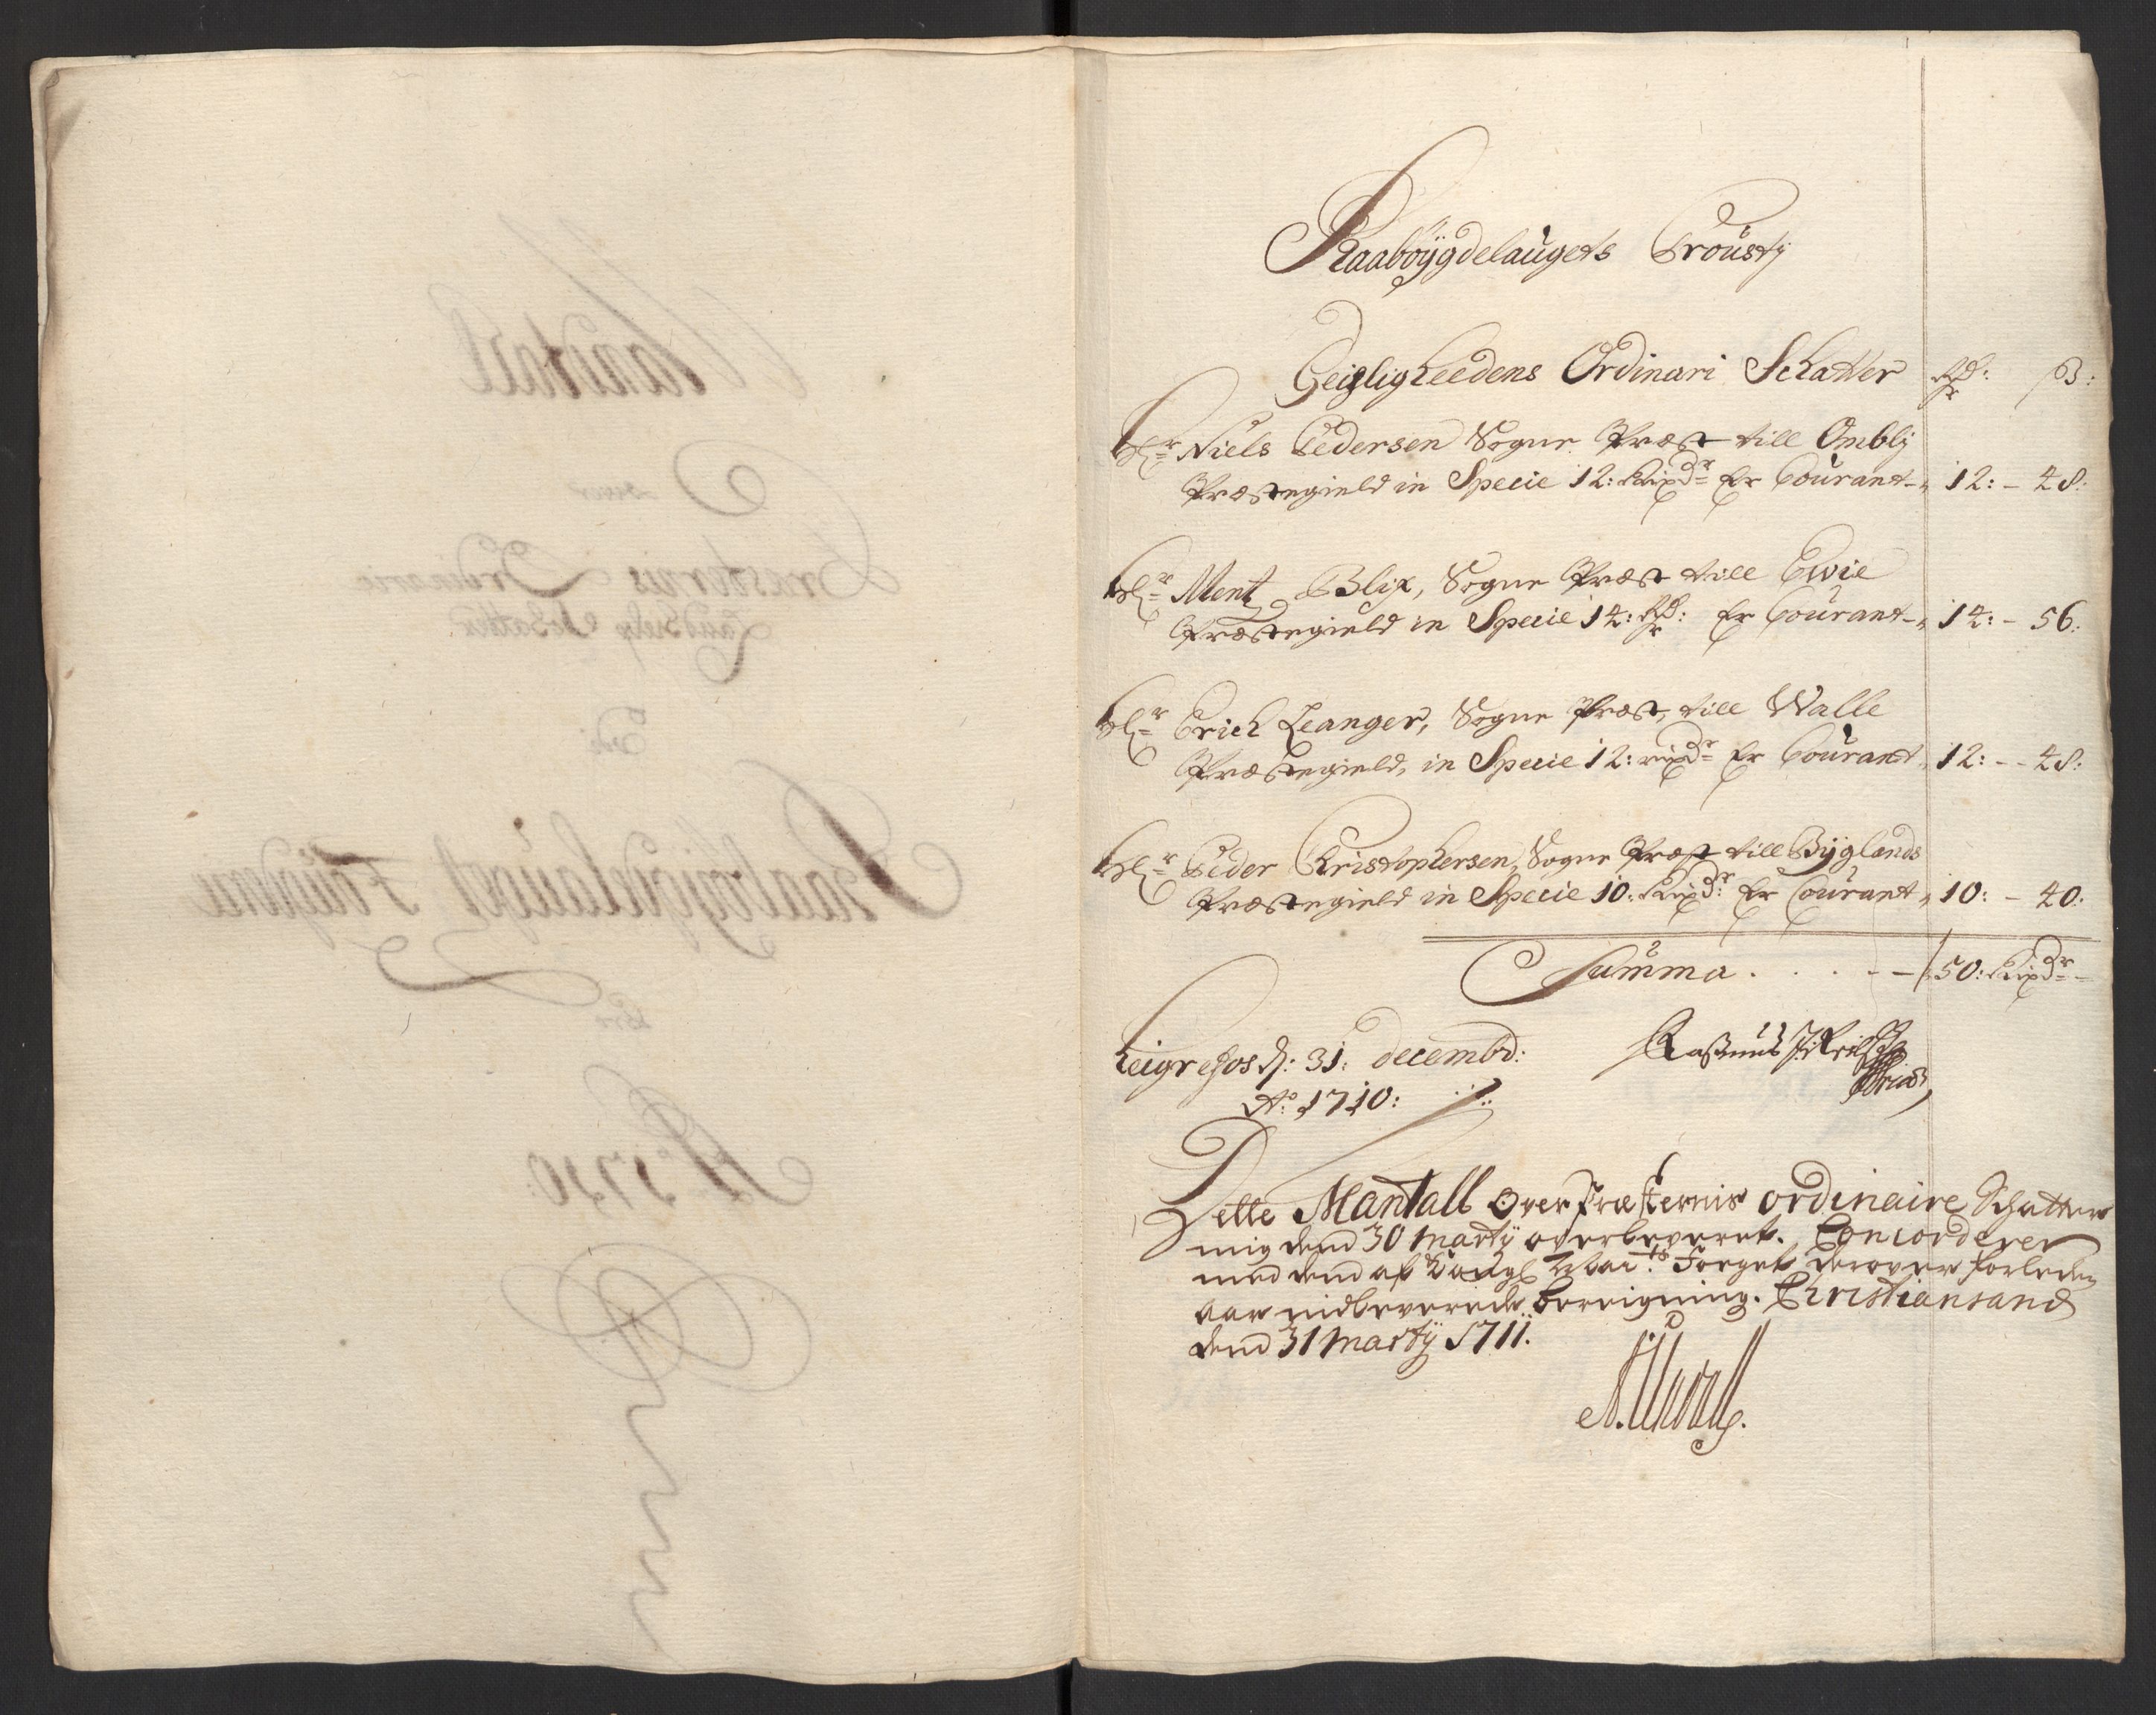 Raabøÿgdelaugets Proustj
Geigligheedens Ordinari Schatter Rd: ß:
Hr Niels Pedersen Sogne Præst till Omblj
Præstegield in Specie 12: Rixdr Er Courant 12: - 48:
Hr Mentz Blix, Sogne Præst till Ewie
Præstegield in Specie 14: Rd: Er Courant 14: - 56:
Hr Erich Leanger, Sogne Præst, till Walle
Præstegield, in Specie 12: rixdr Er Courant 12: - - 48:
Hr Peder Christophersen, Sogne Præst till Bÿglands
Præstegield in Specie 10: Rixdr: Er Courant 10: - 40:
Summa . . . . - - 50: Rixdr
d: 31: decembd: Rasmus
Ao: 1710:
Dette Mantall over Præsternis ordinaire Schatter
mig dend 30 Martÿ overleveret. Concorderer
med dend af Kongl Mai.ts Foeget derover forleden
aar indleverede bereigning. Christiansand
dend 31 Martÿ 1711.
Mandtall
Over
Præsternis Ordinarie
Schatter
Udi
Raabøÿgdelauget Fougderie
Ao 1710: